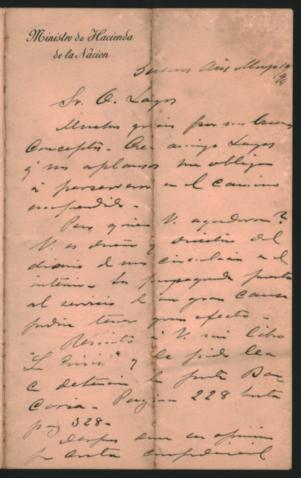 Ministro de Hacienda
de la Nación
Buenos Aires Mayo
Sr. O. Lagos
Muchas gracias por sus buenos
conceptos. Crea amigo Lagos
q' sus aplausos me obligan
á perseverar en el camino
emprendido.
Pero quiere V. ayudarme?
V. es dueño y director del
diario de mas circulacion en el
interior. Su propaganda puesta
al servicio de una gran causa
podria tener gran efecto.
Remito á V. mi libro
"La Crisis" y le pido lea
con detencion la parte Ban-
caria. Pagina 228 hasta
pag 328.
Despues deme su opinion
en carta confidencial